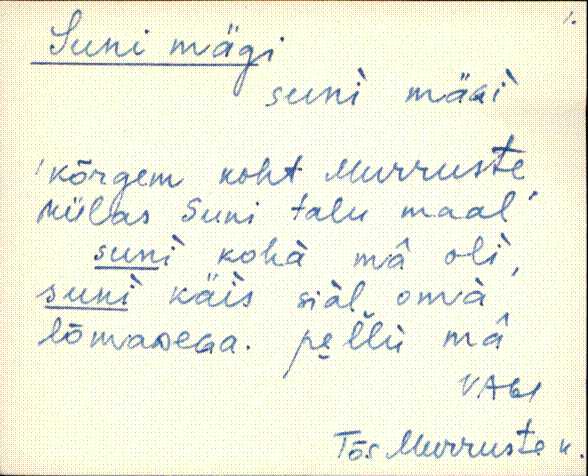 1.
Suni mägi
sunì mäGì
'kõrgem koht Murruste
külas Suni talu maal'
sunì kohà mâ olì,
sunì käis siàl omà
lõmaDeGa. pellù mâ
VA61
Tõs Murruste k.